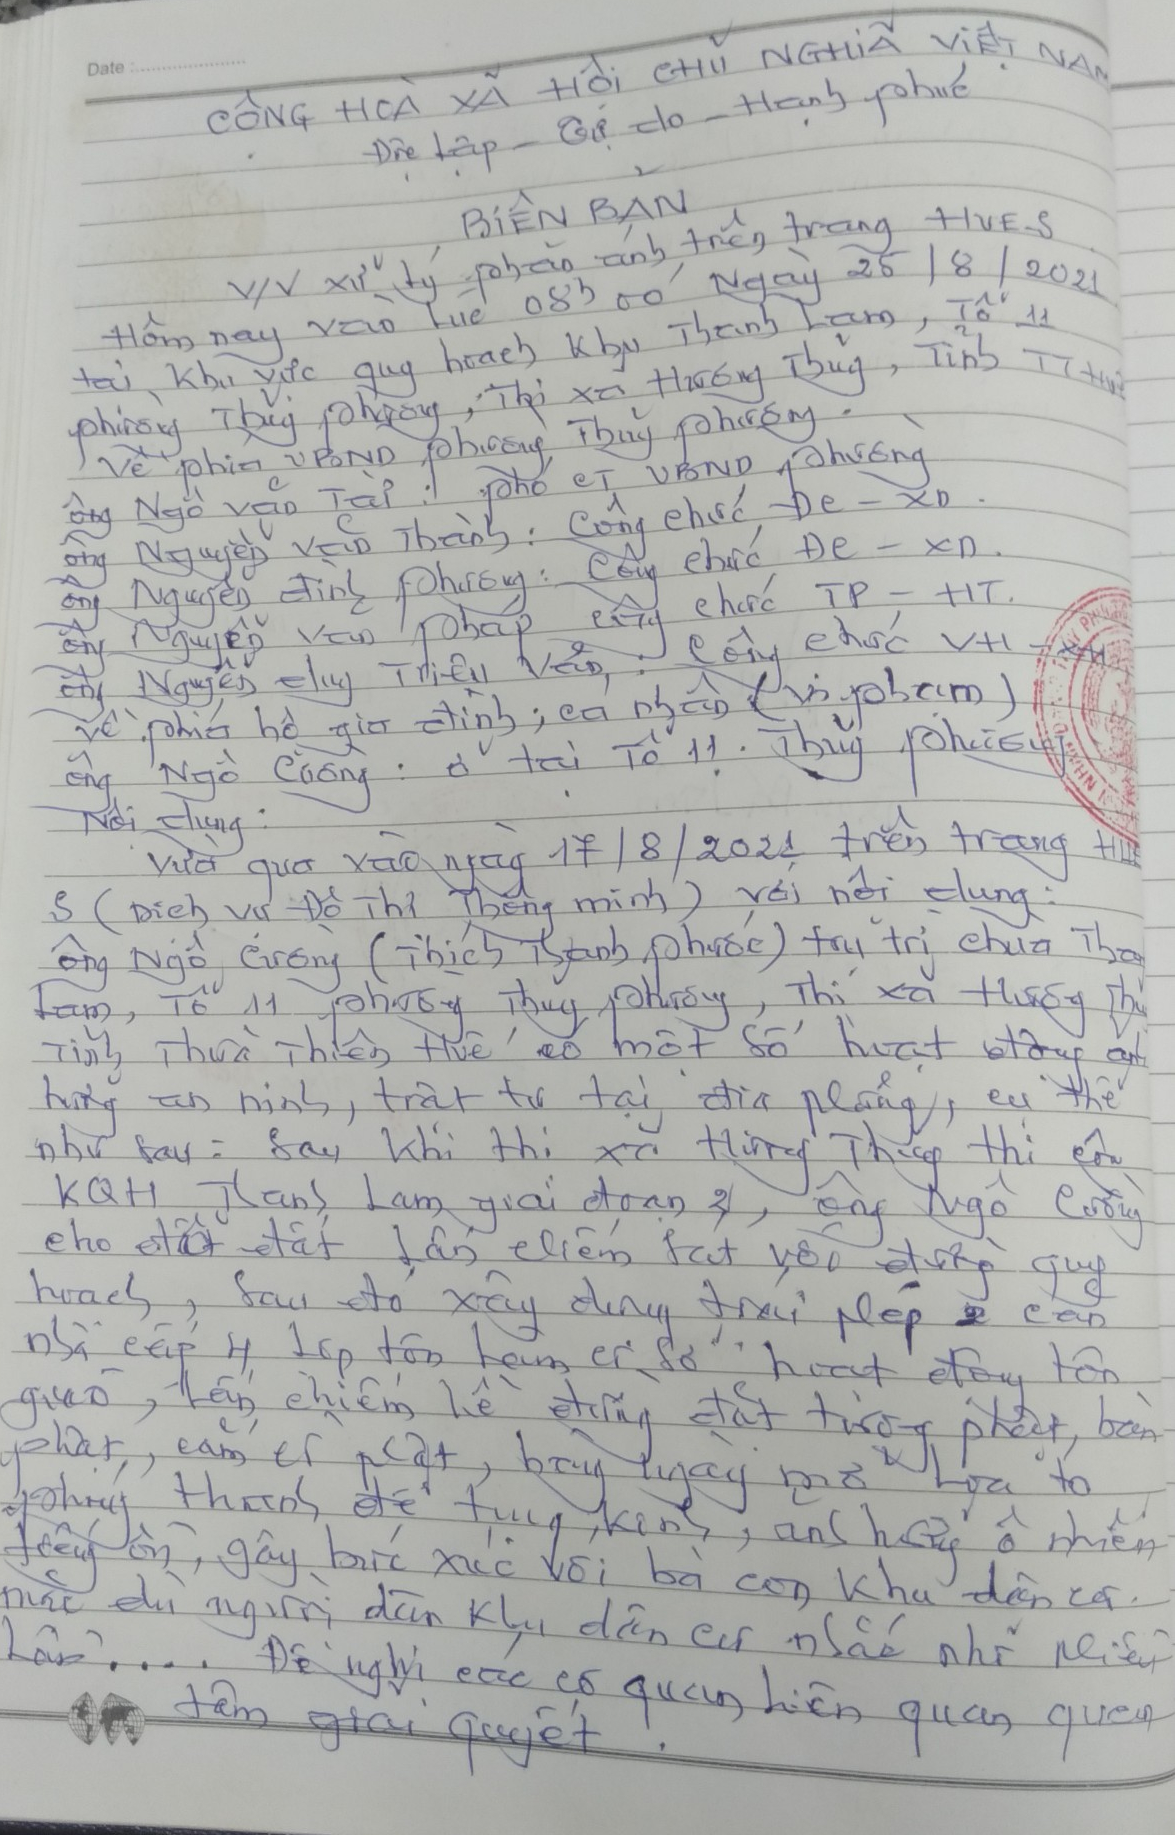 Date :
CỘNG HOÀ XÃ HỘI CHỦ NGHĨA VIỆT NAM
Độc lập – Tự do – Hạnh phúc
BIÊN BẢN
V/V xử lý phản ánh trên trang HUE-S
Hôm nay vào lúc 08h00' Ngày 25/8/2021
tại khu vực quy hoạch khu Thanh Lam, Tổ 11
phường Thủy phương, Thị xã Hương Thủy, Tỉnh TT Huế
Về phía UBND phường Thủy phương.
ông Ngô văn Tài: phó CT UBND phường
ông Nguyễn văn Thành: Công chức ĐC – XD.
ông Nguyễn đình phương: Công chức ĐC – XD.
ông Nguyễn văn pháp công chức TP – HT.
ông Nguyễn duy Triệu Vẫn: Công chức VH – XH
về phía hộ gia đình; cá nhân (vi phạm)
ông Ngô Cường: ở tại Tổ 11. Thủy phương
Nội dung:
Vừa qua vào ngày 17/8/2021 trên trang HUE
S (Dịch vụ Đô Thị Thông minh) với nội dung:
ông Ngô Cường (Thích Thanh phước) trụ trì chùa
Lam, Tổ 11 phường Thủy phương, Thị xã Hương Thủy
Tỉnh Thừa Thiên Huế có một số hoạt động ảnh
hưởng an ninh, trật tự tại địa phương, cụ thể
như sau: Sau khi thị xã Hương Thủy thi công
KQH Thanh Lam giai đoạn 2, ông Ngô Cường
cho đất lấn chiếm sát với đường quy
hoạch, Sau đó xây dựng trái phép 2 căn
nhà cấp 4 lợp tôn làm cơ sở hoạt động tôn
giáo, lấn chiếm lề đường đặt tượng phật, bàn
phật, cắm cờ phật, hàng ngày mở loa to
phóng thanh để tụng kinh, ảnh hưởng ô nhiễm
tiếng ồn, gây bức xúc với bà con khu dân cư.
mặc dù người dân khu dân cư nhắc nhở nhiều
lần..... Đề nghị các cơ quan liên quan quan
tâm giải quyết.